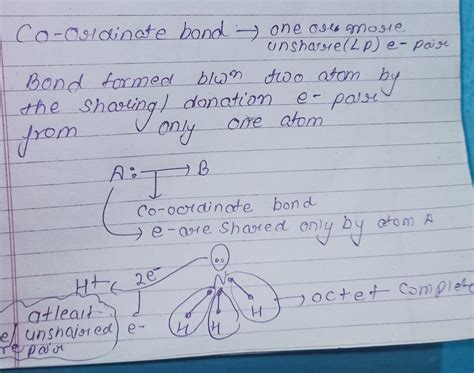 Co-ordinate bond → one or more
unshare(LP) e- pair
Bond formed b/wn two atom by
the sharing/ donation e- pair
from only one atom
A: → B
Co-ordinate bond
→ e- are shared only by atom A
H+ 2e- N
→ octet complete
atleast
unshared e- H H H
pair